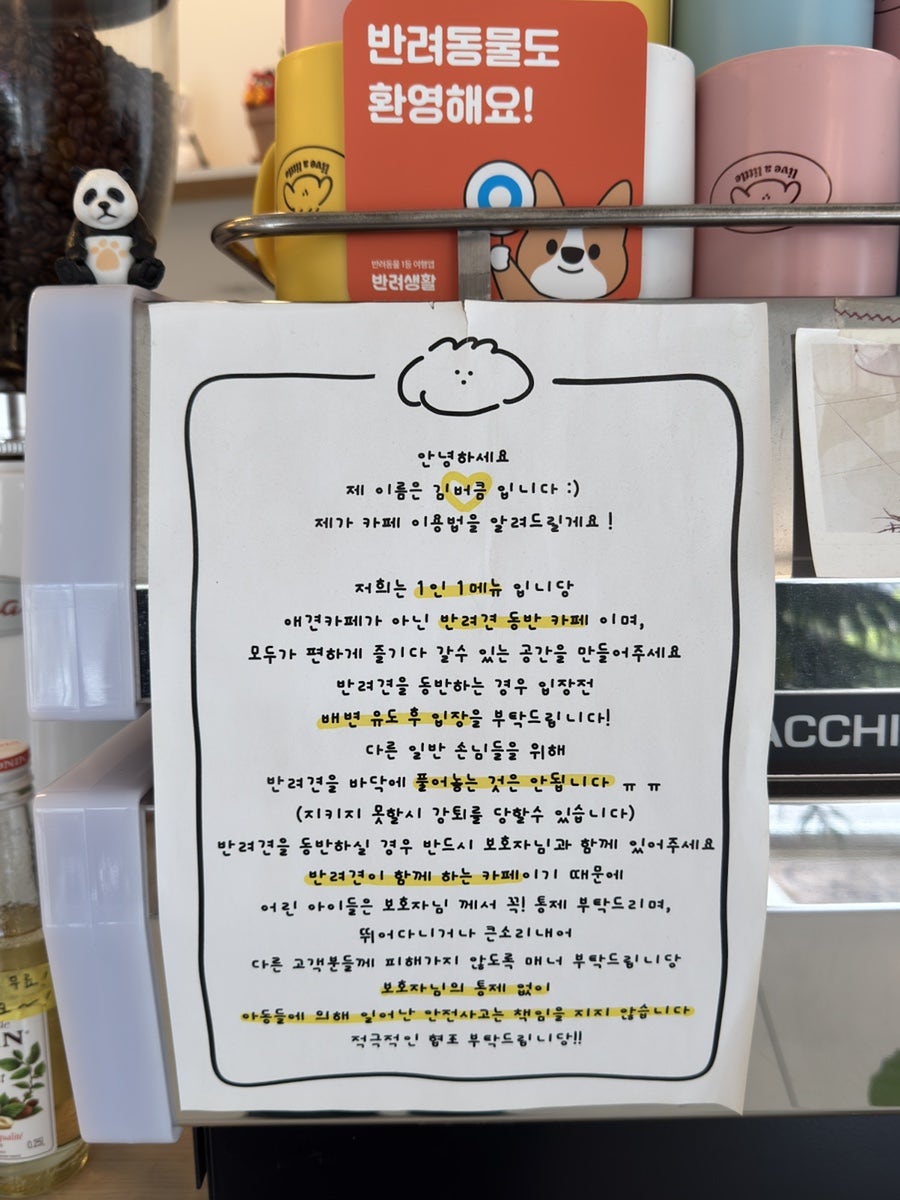 반려동물도
환영해요!
live a little
live a little
반려동물 1등 여행앱
반려생활
안녕하세요
제 이름은 김버콤 입니다 :)
제가 카페 이용법을 알려드릴게요 !
저희는 1인 1메뉴 입니당
애견카페가 아닌 반려견 동반 카페 이며,
모두가 편하게 즐기다 갈수 있는 공간을 만들어주세요
반려견을 동반하는 경우 입장전
배변 유도 후 입장을 부탁드립니다!
다른 일반 손님들을 위해
반려견을 바닥에 풀어놓는 것은 안됩니다 ㅠㅠ
(지키지 못할시 강퇴를 당할수 있습니다)
반려견을 동반하실 경우 반드시 보호자님과 함께 있어주세요
반려견이 함께 하는 카페이기 때문에
어린 아이들은 보호자님 께서 꼭! 통제 부탁드리며,
뛰어다니거나 큰소리내어
다른 고객분들께 피해가지 않도록 매너 부탁드립니당
보호자님의 통제 없이
아동들에 의해 일어난 안전사고는 책임을 지지 않습니다
적극적인 협조 부탁드립니당!!
ACCHI
무료
0.25L